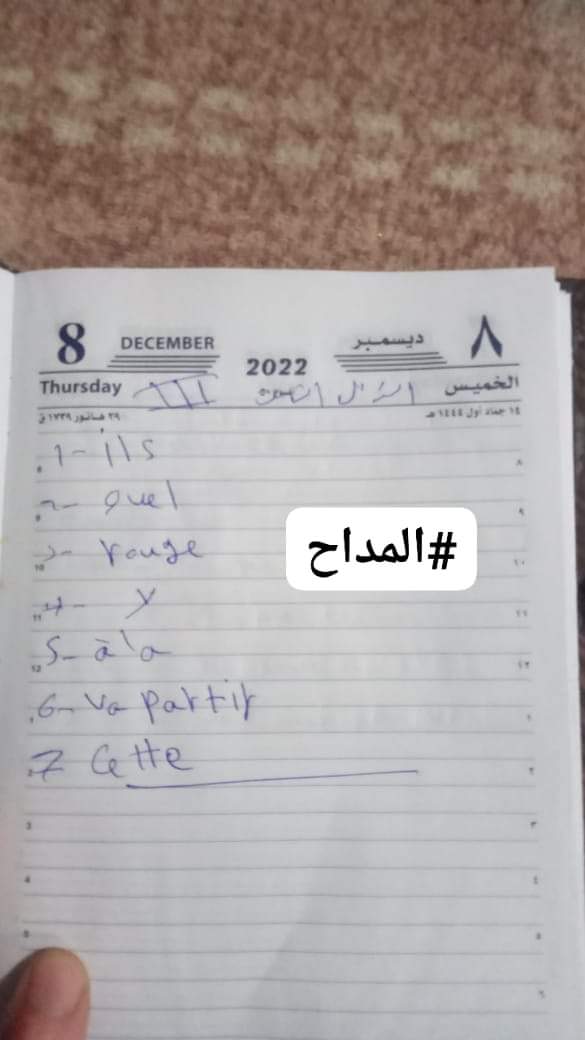 8 DECEMBER 2022 ديسمبر ٨
Thursday III السؤال الخامس الخميس
٢٩ هاتور ١٧٣٩ ق ١٤ جماد أول ١٤٤٤ هـ
1- ils
2- quel
3- rouge
#المداح
4- y
5- à la
6- va partir
7 Cette